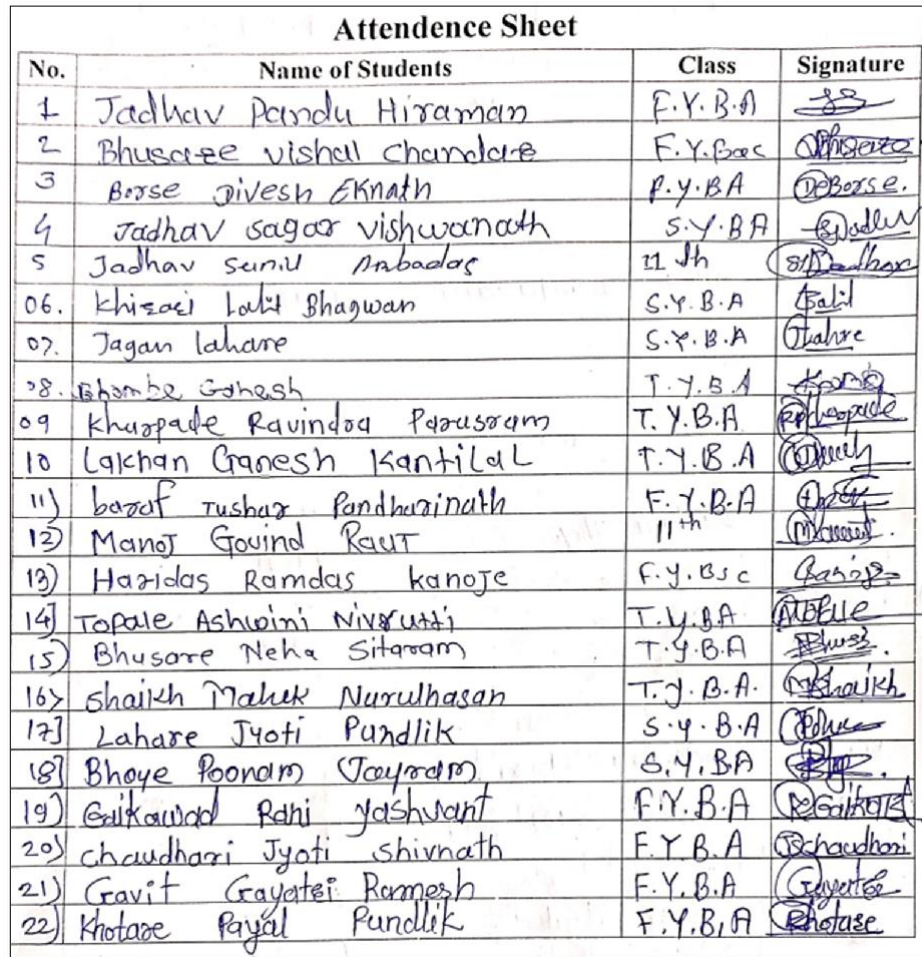 Attendence Sheet
No. Name of Students Class Signature
1 Jadhav Pandu Hiraman F.Y.B.A
2 Bhusare vishal chandar F.Y.Bsc
3 Borse Divesh Eknath F.Y.BA DeBorse.
4 Jadhav sagar vishwanath S.Y.BA
5 Jadhav sunil Ambadas 11 th
06. Lalit Bhagwan S.Y.B.A Lalit
07. Jagan lahare S.Y.B.A Jlahare
08. Ganesh T.Y.B.A
09 Khurpade Ravindra Parusram T.Y.B.A
10 Lakhan Ganesh Kantilal T.Y.B.A
11) baraf Tushar Pandharinath F.Y.B.A
12) Manoj Govind Raut 11th
13) Haridas Ramdas kanoje F.Y.Bsc
14] Topale Ashwini Nivrutti T.Y.BA
15) Bhusare Neha Sitaram T.Y.B.A
16> Shaikh Mahek Nurulhasan T.Y.B.A. MShaikh
17] Lahare Jyoti Pundlik S.Y.B.A
18] Bhoye Poonam Jayram S.Y.BA
19) Gaikawad Rani yashvant F.Y.B.A
20) chaudhari Jyoti shivnath F.Y.B.A Jschaudhari
21) Gavit Gayatri Ramesh F.Y.B.A Gayatri
22) Khotare Payal Pundlik F.Y.B.A Khotare